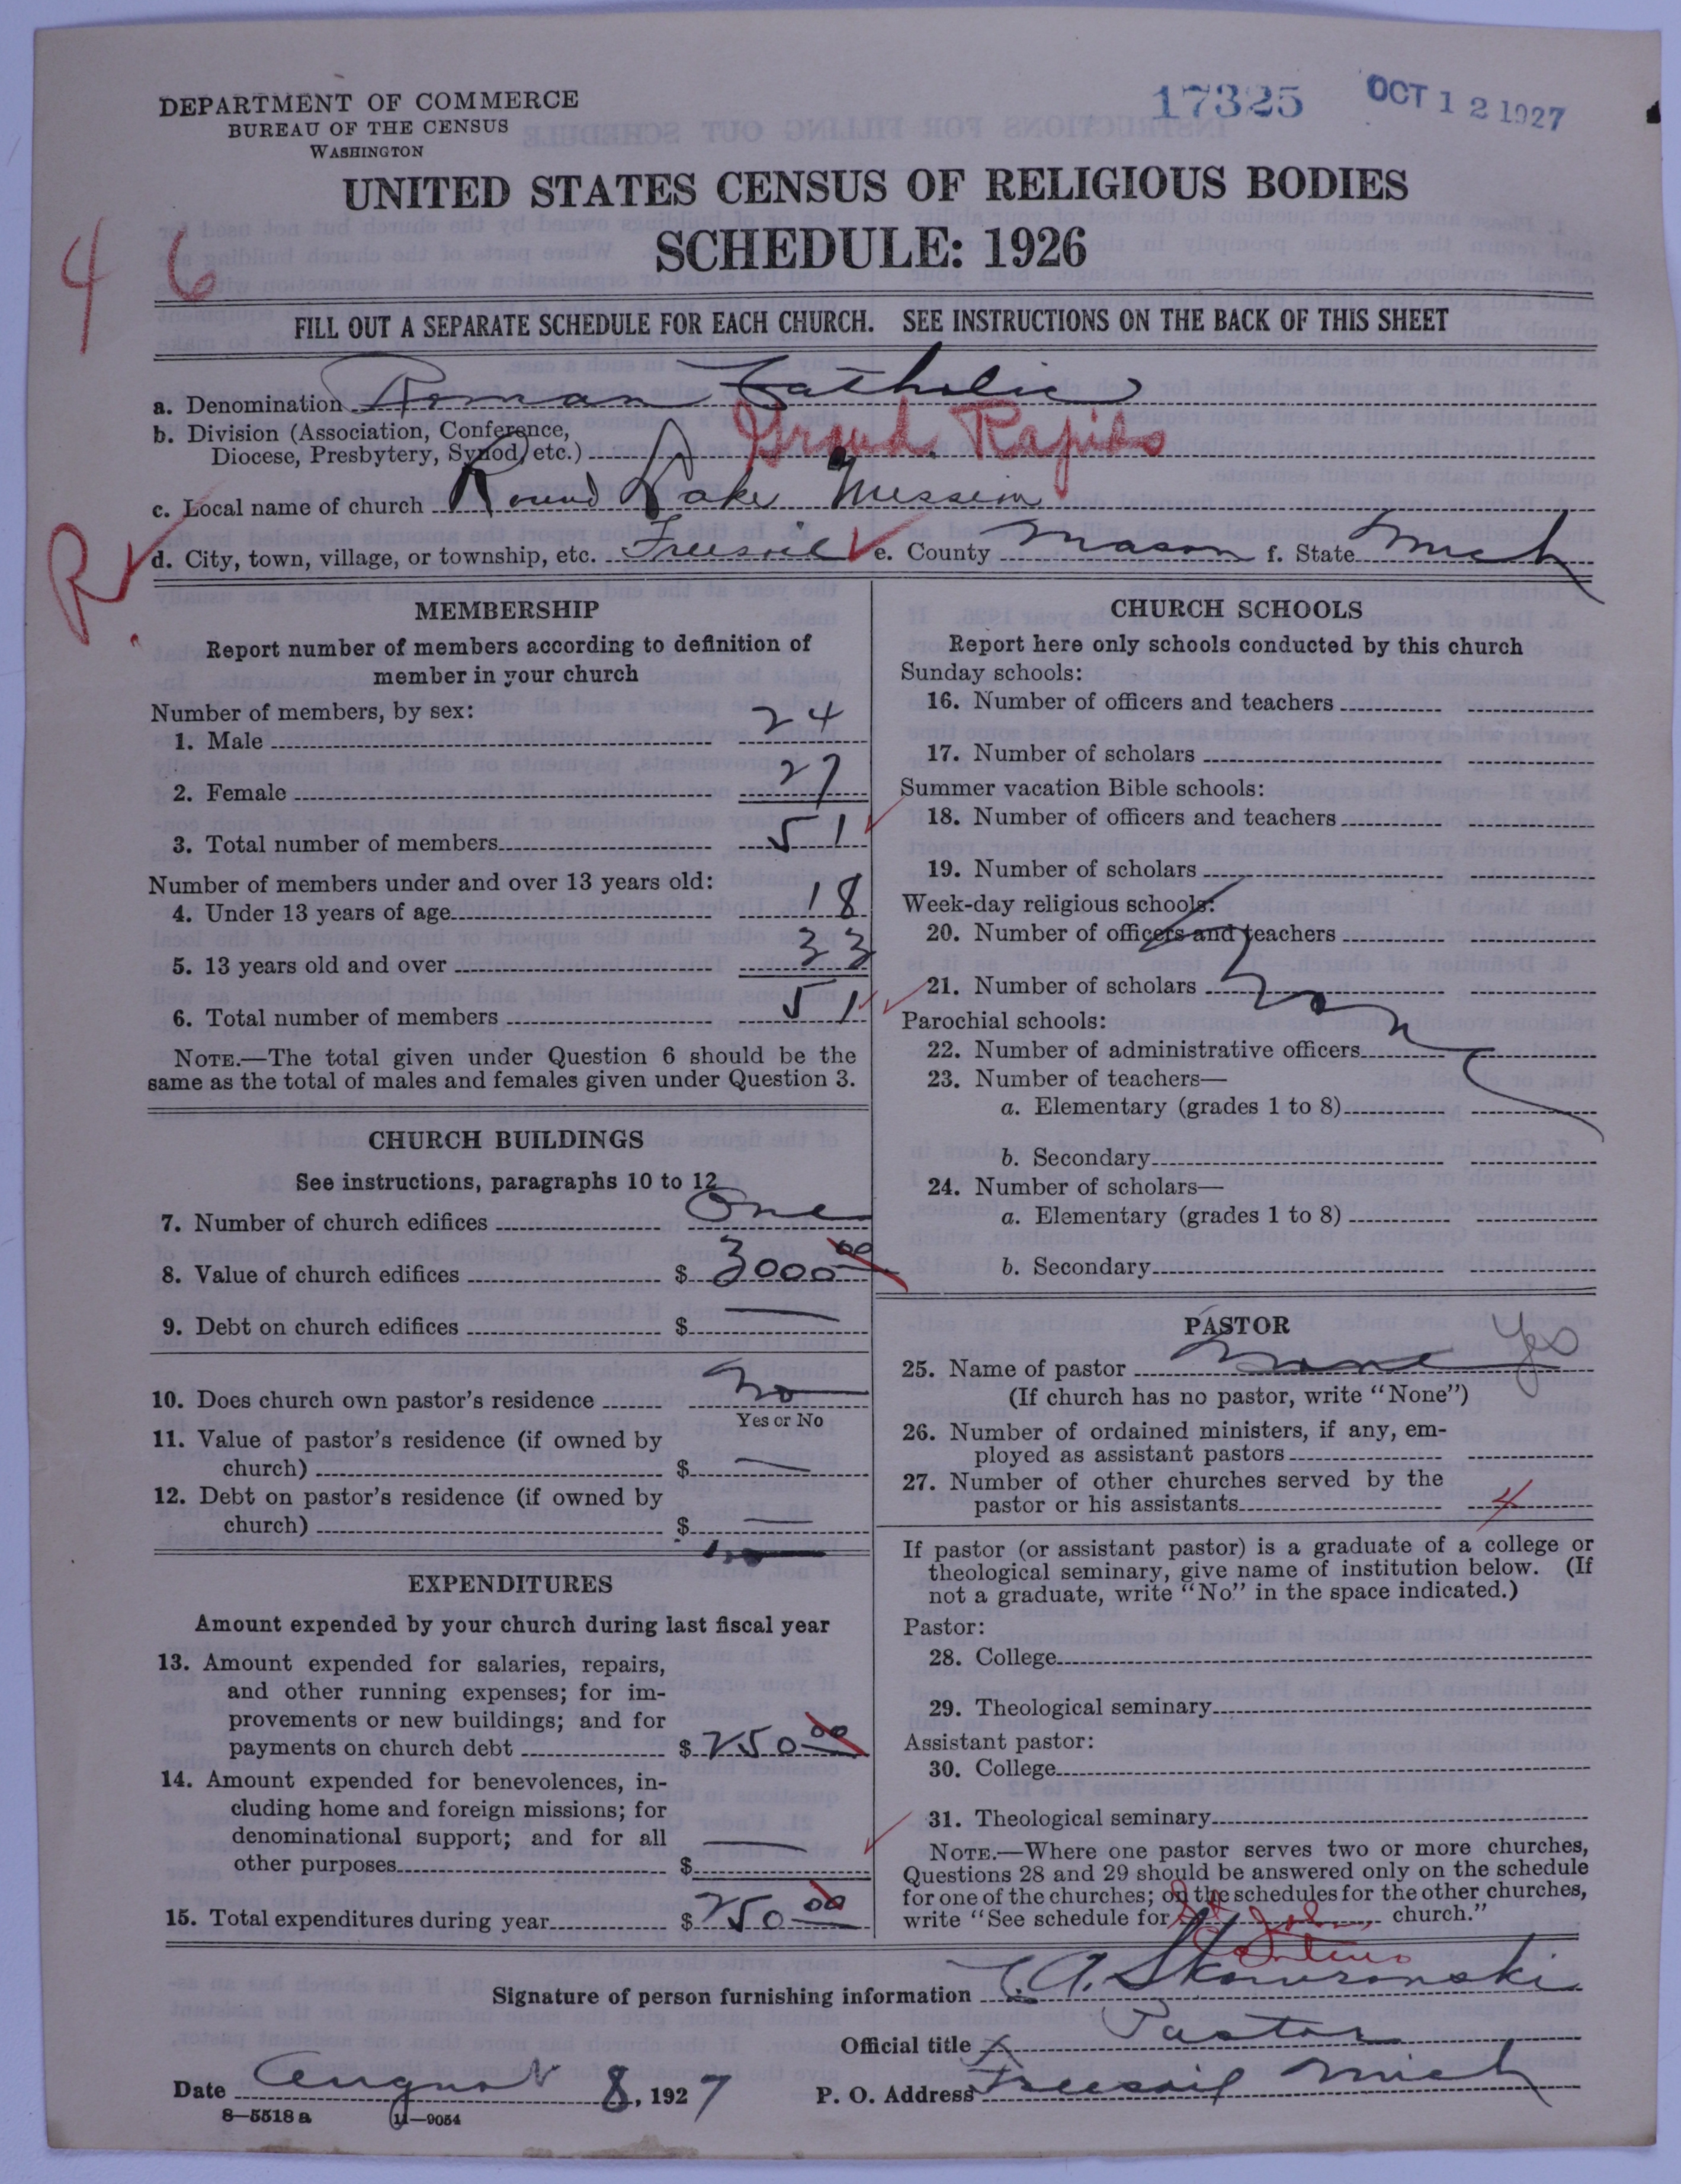 DEPARTMENT OF COMMERCE
BUREAU OF THE CENSUS
WASHINGTON
17325 OCT 12 1927
UNITED STATES CENSUS OF RELIGIOUS BODIES
SCHEDULE: 1926
46
FILL OUT A SEPARATE SCHEDULE FOR EACH CHURCH. SEE INSTRUCTIONS ON THE BACK OF THIS SHEET
a. Denomination Roman Catholic
b. Division (Association, Conference,
Diocese, Presbytery, Synod, etc.) Grand Rapids
c. Local name of church Round Lake Mission
R
d. City, town, village, or township, etc. Freesoil e. County Mason f. State Mich
MEMBERSHIP
Report number of members according to definition of
member in your church
Number of members, by sex:
1. Male 24
2. Female 27
3. Total number of members 51
Number of members under and over 13 years old:
4. Under 13 years of age 18
5. 13 years old and over 33
6. Total number of members 51
NOTE.—The total given under Question 6 should be the
same as the total of males and females given under Question 3.
CHURCH BUILDINGS
See instructions, paragraphs 10 to 12
7. Number of church edifices One
8. Value of church edifices $ 3000 00
9. Debt on church edifices $ —
10. Does church own pastor's residence No
Yes or No
11. Value of pastor's residence (if owned by
church) $ —
12. Debt on pastor's residence (if owned by
church) $ —
EXPENDITURES
Amount expended by your church during last fiscal year
13. Amount expended for salaries, repairs,
and other running expenses; for im-
provements or new buildings; and for
payments on church debt $ 250 00
14. Amount expended for benevolences, in-
cluding home and foreign missions; for
denominational support; and for all
other purposes $ —
15. Total expenditures during year $ 250 00
CHURCH SCHOOLS
Report here only schools conducted by this church
Sunday schools:
16. Number of officers and teachers
17. Number of scholars
Summer vacation Bible schools:
18. Number of officers and teachers
19. Number of scholars
Week-day religious schools:
20. Number of officers and teachers
21. Number of scholars
Parochial schools:
22. Number of administrative officers
23. Number of teachers—
a. Elementary (grades 1 to 8)
b. Secondary
24. Number of scholars—
a. Elementary (grades 1 to 8)
b. Secondary
PASTOR
25. Name of pastor None Yes
(If church has no pastor, write "None")
26. Number of ordained ministers, if any, em-
ployed as assistant pastors
27. Number of other churches served by the
pastor or his assistants 4
If pastor (or assistant pastor) is a graduate of a college or
theological seminary, give name of institution below. (If
not a graduate, write "No" in the space indicated.)
Pastor:
28. College
29. Theological seminary
Assistant pastor:
30. College
31. Theological seminary
NOTE.—Where one pastor serves two or more churches,
Questions 28 and 29 should be answered only on the schedule
for one of the churches; on the schedules for the other churches,
write "See schedule for St John church."
Signature of person furnishing information
Official title Pastor
Date August 8, 1927 P. O. Address Freesoil Mich
8—5518 a 11—9054